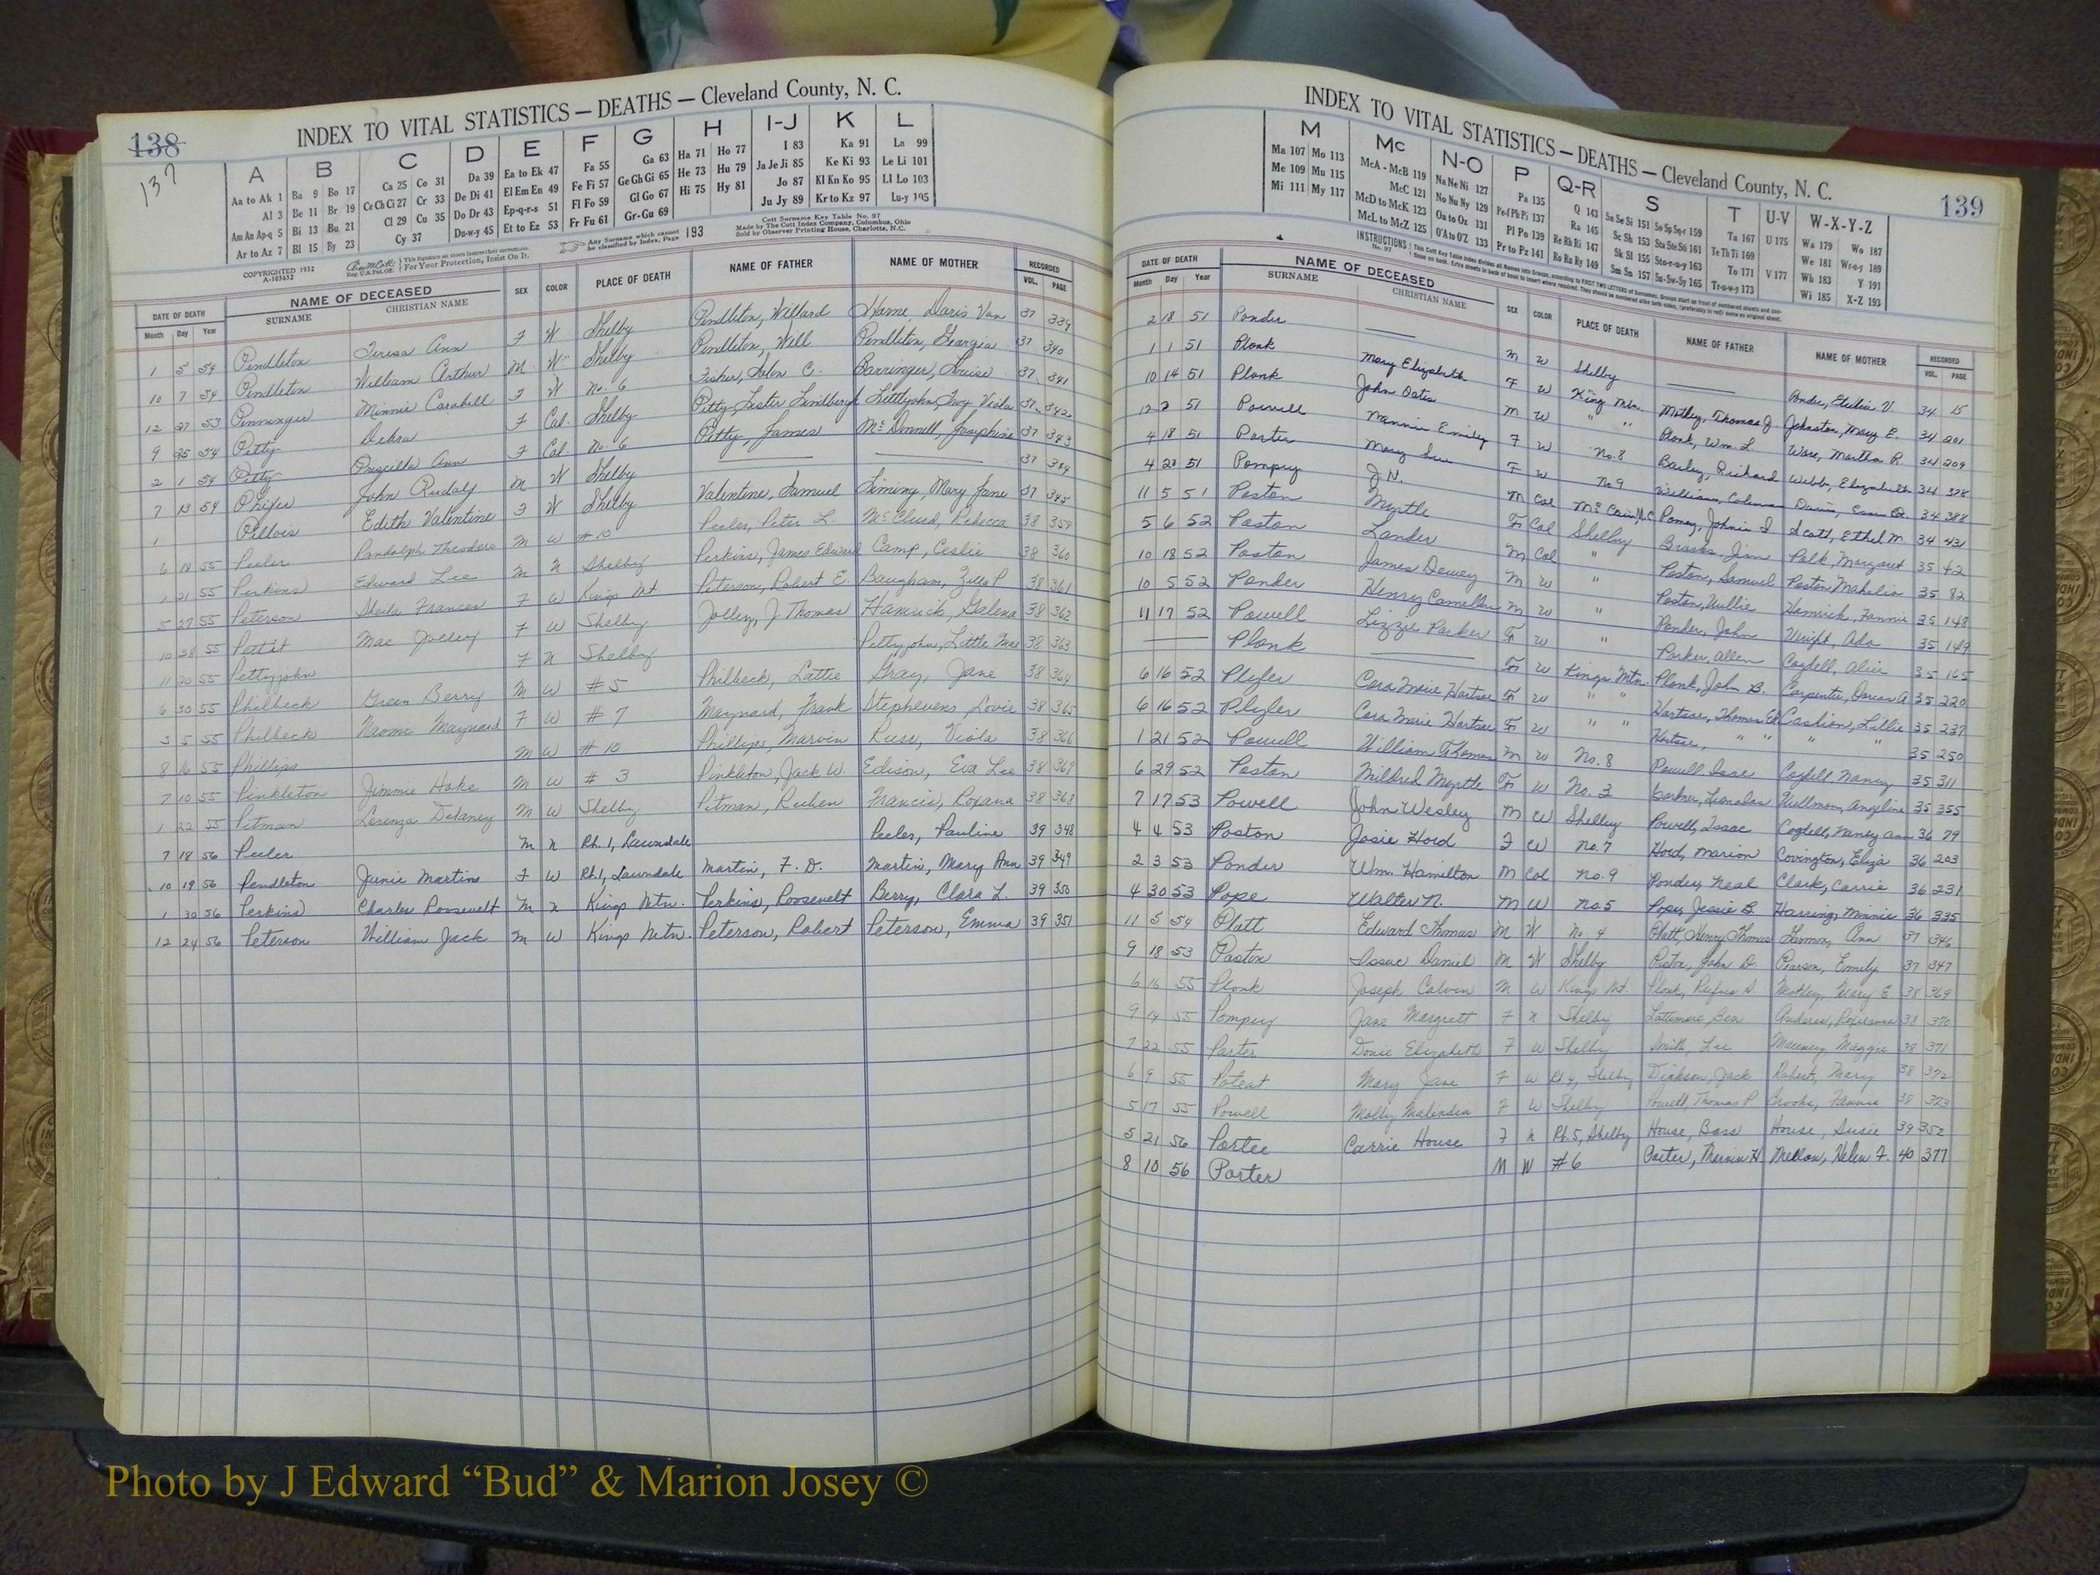 138
137
INDEX TO VITAL STATISTICS — DEATHS — Cleveland County, N. C.
A B C D E F G H I-J K L
Aa to Ak 1 Ba 9 Bo 17 Ca 25 Co 31 Da 39 Ea to Ek 47 Fa 55 Ga 63 Ha 71 Ho 77 I 83 Ka 91 La 99
Al 3 Be 11 Br 19 Ce Ch Ci 27 Cr 33 De Di 41 El Em En 49 Fe Fi 57 Ge Gh Gi 65 He 73 Hu 79 Ja Je Ji 85 Ke Ki 93 Le Li 101
Am An Ap-q 5 Bi 13 Bu 21 Cl 29 Cu 35 Do Dr 43 Ep-q-r-s 51 Fl Fo 59 Gl Go 67 Hi 75 Hy 81 Jo 87 Kl Kn Ko 95 Ll Lo 103
Ar to Az 7 Bl 15 By 23 Cy 37 Du-w-y 45 Et to Ez 53 Fr Fu 61 Gr-Gu 69 Ju Jy 89 Kr to Kz 97 Lu-y 105
COPYRIGHTED 1932 A-103632
For Your Protection, Insist On It.
Any Surname which cannot be classified by Index, Page 193
Cott Surname Key Table No. 97
Made by The Cott Index Company, Columbus, Ohio
Sold by Observer Printing House, Charlotte, N.C.
DATE OF DEATH NAME OF DECEASED SEX COLOR PLACE OF DEATH NAME OF FATHER NAME OF MOTHER RECORDED
Month Day Year SURNAME CHRISTIAN NAME VOL. PAGE
1 5 54 Pendleton Teresa Ann F W Shelby Pendleton, Willard Hame, Doris Van 37 339
10 7 54 Pendleton William Arthur M W Shelby Pendleton, Will Pendleton, Georgia 37 340
12 27 53 Penninger Minnie Carabell F W No. 6 Fisher, John C. Barringer, Louise 37 341
9 25 54 Petty Debra F Col. Shelby Petty, Lester Lindbergh Littlejohn, Ivy Viola 37 342
2 1 54 Petty Priscilla Ann F Col. No. 6 Petty, James McDonnell, Josephine 37 343
7 13 54 Phifer John Rudolf M W Shelby 37 344
1 Edith Valentine F W Shelby Valentine, Samuel Mary Jane 37 345
6 18 55 Peeler Randolph Theodore M W #10 Peeler, Peter L McClurd, Rebecca 38 359
1 21 55 Perkins Edward Lee M N Shelby Perkins, James Edward Camp, Ceslie 38 360
5 27 55 Peterson Sheila Frances F W Kings Mt Peterson, Robert E. Baugham, Zella P 38 361
10 28 55 Pettit Mae Jolley F W Shelby Jolley, J. Thomas Hamrick, Salena 38 362
11 20 55 Pettyjohn F N Shelby Pettyjohn, Lattie Mae 38 363
6 30 55 Philbeck Green Berry M W #5 Philbeck, Lattie Gray, Jane 38 364
3 5 55 Philbeck Naomi Maynard F W #7 Maynard, Frank Stephevens, Lovie 38 365
8 16 55 Phillips M W #10 Phillips, Marvin Russ, Viola 38 366
7 10 55 Pinkleton Jimmie Hoke M W # 3 Pinkleton, Jack W. Edison, Eva Lee 38 367
1 22 55 Pitman Lorenza Delaney M W Shelby Pitman, Reuben Francis, Roxana 38 368
7 18 56 Peeler M N Rt. 1, Lawndale Peeler, Pauline 39 348
10 19 56 Pendleton Junie Martin F W Rt. 1, Lawndale Martin, F. D. Martin, Mary Ann 39 349
1 30 56 Perkins Charles Roosevelt M N Kings Mtn. Perkins, Roosevelt Berry, Clara L. 39 350
12 24 56 Peterson William Jack M W Kings Mtn. Peterson, Robert Peterson, Emma 39 351
INDEX TO VITAL STATISTICS — DEATHS — Cleveland County, N. C.
139
M Mc N-O P Q-R S T U-V W-X-Y-Z
Ma 107 Mo 113 McA - McB 119 Na Ne Ni 127 Pa 135 Q 143 Sa Se Si 151 So Sp Sq-r 159 Ta 167 U 175 Wa 179 Wo 187
Me 109 Mu 115 McC 121 No Nu Ny 129 Pe-f Ph Pi 137 Ra 145 Sc Sh 153 Sta Ste Sti 161 Te Th Ti 169 We 181 Wr-u-y 189
Mi 111 My 117 McD to McK 123 Oa to Oz 131 Pl Po 139 Re Rh Ri 147 Sk Sl 155 Sto-r-u-y 163 To 171 V 177 Wh 183 Y 191
McL to McZ 125 O'A to O'Z 133 Pr to Pz 141 Ro Ru Ry 149 Sm Sn 157 Su-Sw-Sy 165 Tr-u-w-y 173 Wi 185 X-Z 193
DATE OF DEATH NAME OF DECEASED SEX COLOR PLACE OF DEATH NAME OF FATHER NAME OF MOTHER RECORDED
Month Day Year SURNAME CHRISTIAN NAME VOL. PAGE
2 18 51 Ponder —— M W Shelby —— Ponder, V. 34 15
1 1 51 Plonk Mary Elizabeth F W King Mtn. Motley, Thomas J Johnston, Mary E. 34 201
10 14 51 Plonk John Oates M W " " Plonk, Wm. L. Ware, Martha R 34 209
12 2 51 Powell Nannie Emily F W No. 8 Bailey, Richard Webb, Elizabeth 34 378
4 18 51 Porter Mary Sue F W No 9 Williams, Coleman 34 388
4 20 51 Pompey J. N. M Col McCain, N.C. Johnie I Scott, Ethel M. 34 431
11 5 51 Poston Myrtle F Col Shelby Brooks, Jim Polk, Margaret 35 42
5 6 52 Poston Lander M Col " Poston, Samuel Poston, Mahalia 35 82
10 18 52 Poston James Dewey M W " Poston, Willie Hamrick, Fannie 35 148
10 5 52 Ponder Henry M W " Ponder, John Wright, Ada 35 149
11 17 52 Powell Lizzie Parker F W " Parker, Allen Cogdell, Alice 35 165
—— Plonk —— F W Kings Mtn Plonk, John B. Carpenter, Dorcas A 35 220
6 16 52 Plyler Cora Marie Hartsoe F W " " Hartsoe, Thomas Ed Cashion, Lillie 35 237
6 16 52 Plyler Cora Marie Hartsoe F W " " Hartsoe, " " " " 35 250
1 21 52 Powell William Thomas M W No. 8 Powell, Isac Cogdell, Nancy 35 311
6 29 52 Poston Mildred Myrtle F W No. 3 Wellmon, Angeline 35 355
7 17 53 Powell John Wesley M W Shelby Powell, Isaac Cogdell, Nancy Ann 36 79
4 4 53 Poston Josie Hord F W No. 7 Hord, Marion Covington, Eliza 36 203
2 3 53 Ponder Wm. Hamilton M Col No. 9 Ponder, Neal Clark, Carrie 36 231
4 30 53 Pope Walter N. M W No. 5 Pope, Jessie B. Harring, Minnie 36 335
11 5 54 Platt Edward Thomas M W No. 4 Platt, Henry Thomas Ann 37 346
9 18 53 Poston Issac Daniel M W Shelby Poston, John D. Pearson, Emily 37 347
6 16 55 Plonk Joseph Calvin M W Kings Mt. Plonk, Rufus S. Motley, Mary E 38 369
9 14 55 Pompey Jane Margrett F N Shelby Lattimore, Ben Anders, Roxanna 38 370
7 22 55 Porter Donie Elizabeth F W Shelby Smith, Lee Mauney, Maggie 38 371
6 9 55 Poteat Mary Jane F W Rt 4, Shelby Dickson, Jack Roberts, Mary 38 372
5 17 55 Powell Molly Malindia F W Shelby Powell, Thomas P. Brooks, Fannie 38 373
5 21 56 Portee Carrie House F N Rt. 5, Shelby House, Bass House, Susie 39 352
8 10 56 Porter M W #6 Porter, Marvin H Mellon, Helen F. 40 377
Photo by J Edward “Bud” & Marion Josey ©